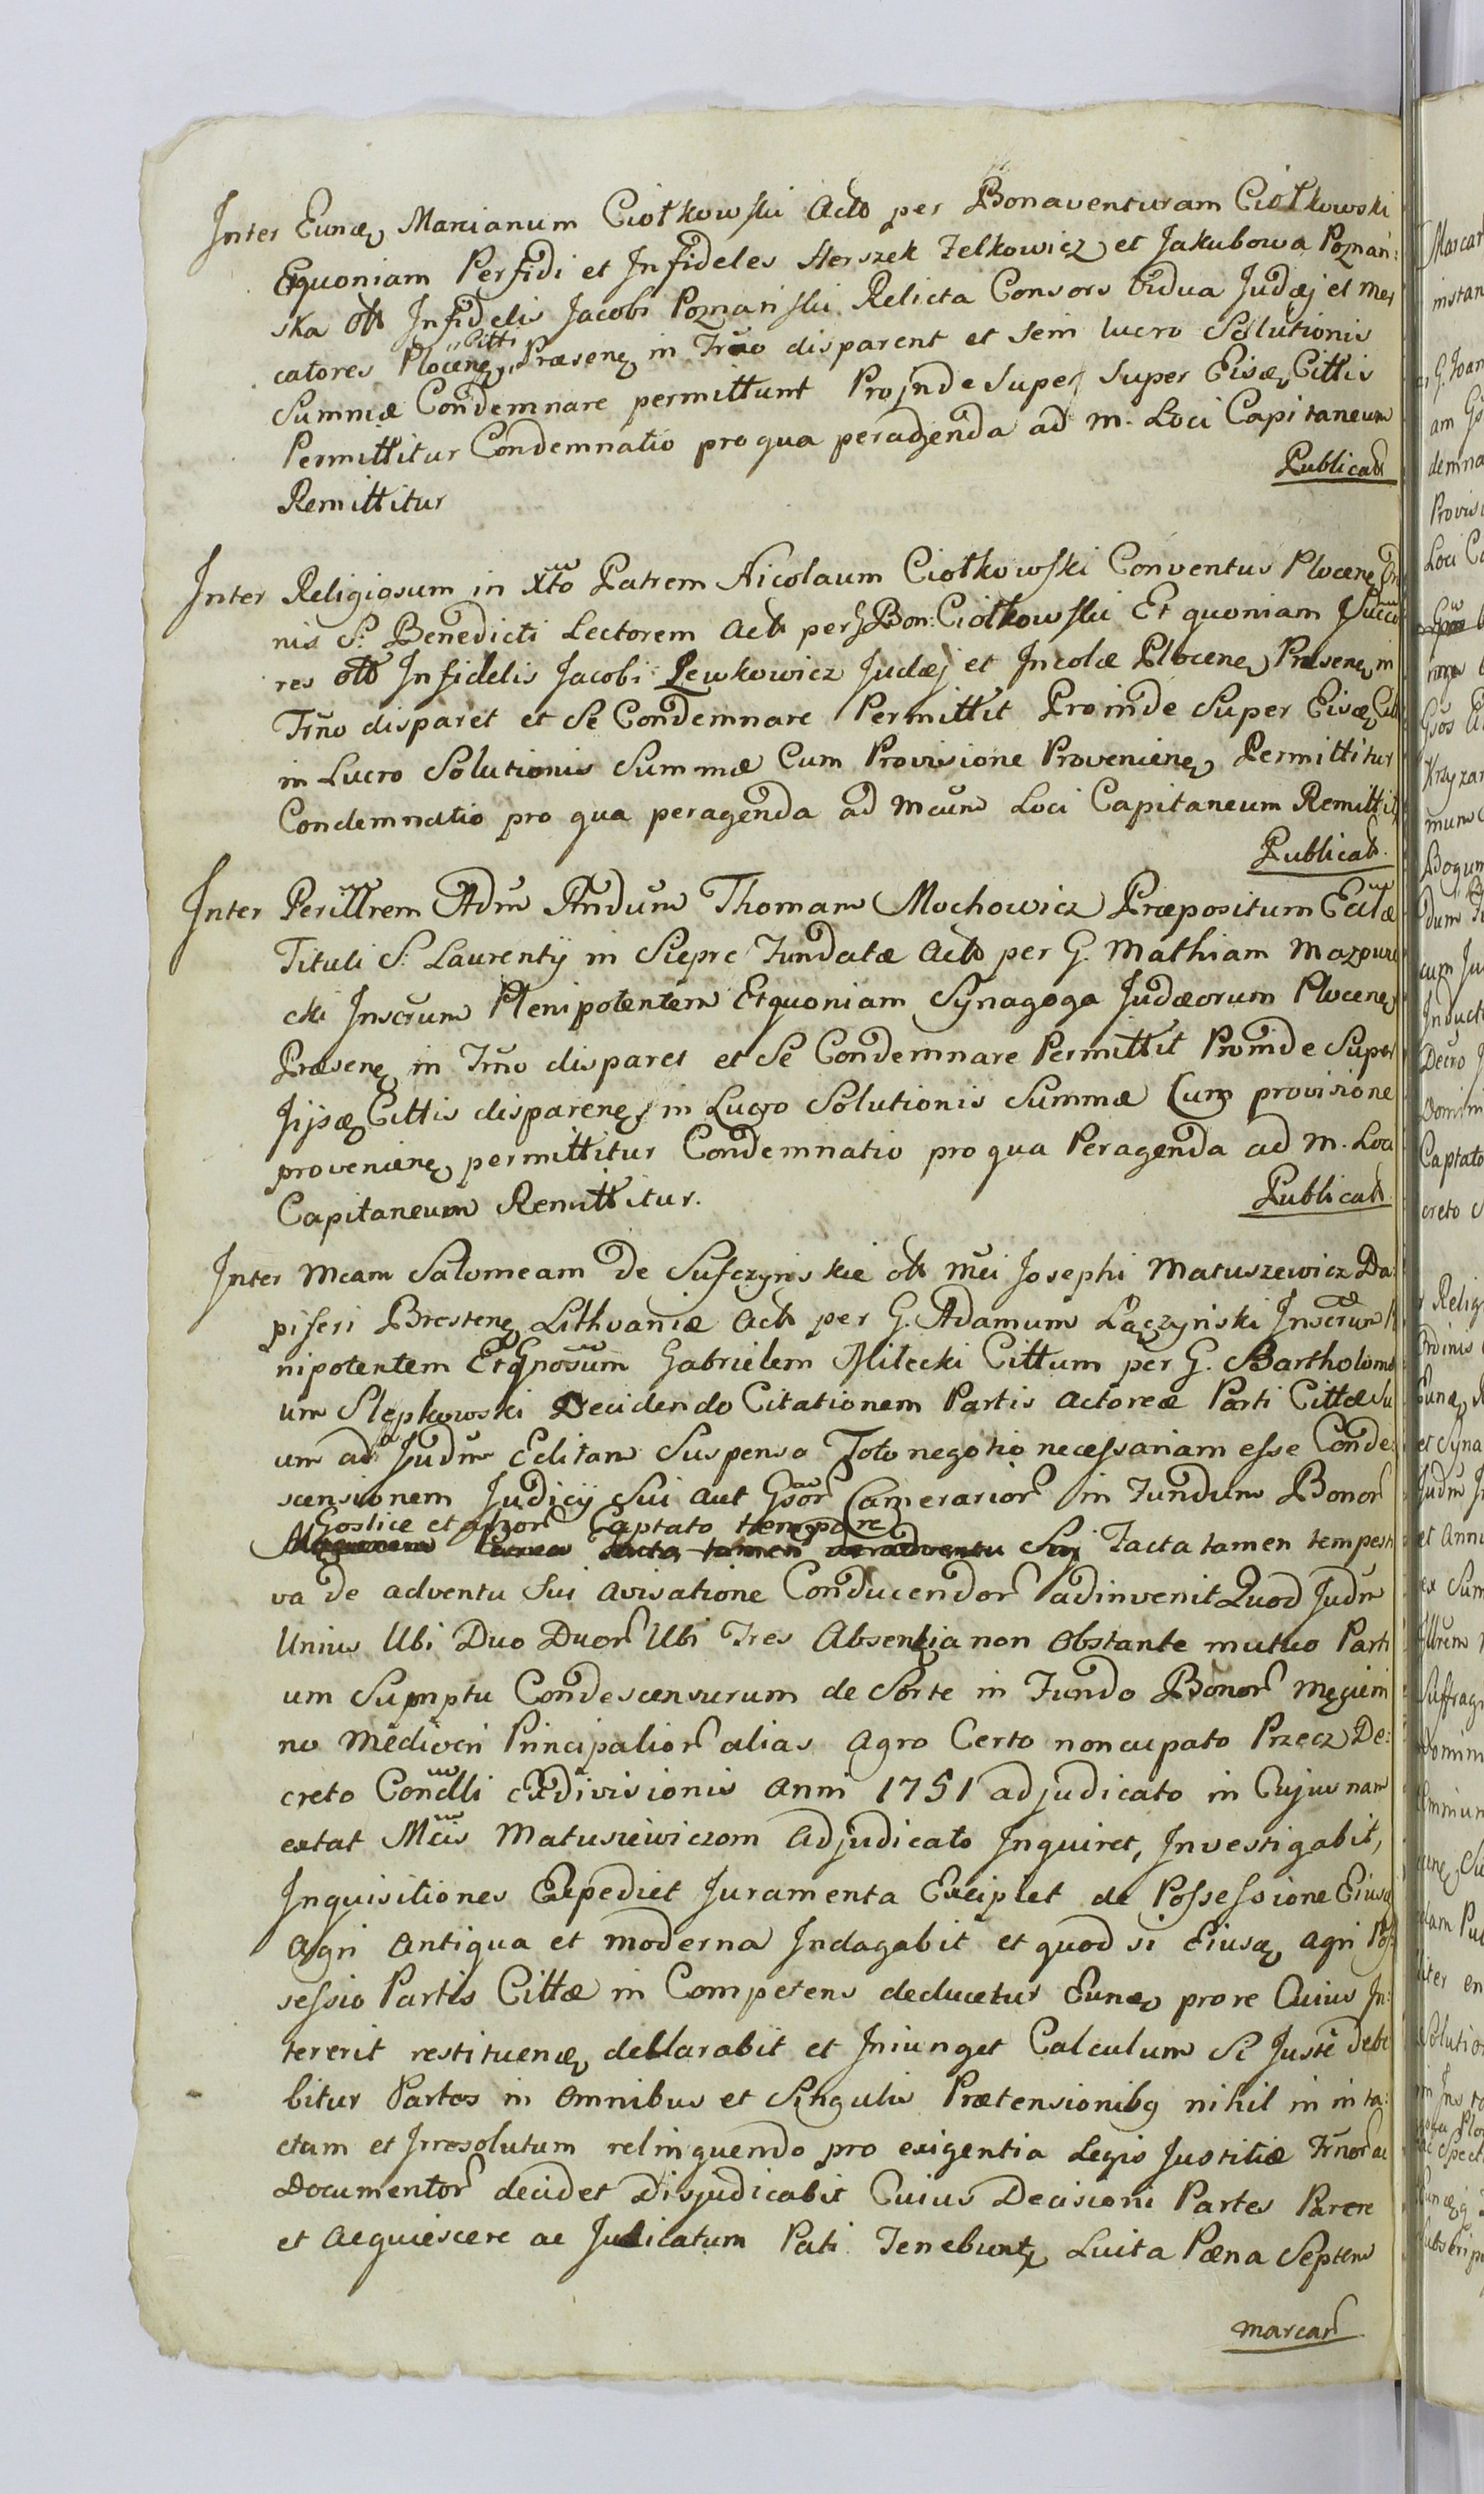 Inter Eundę Marcianum Ciołkowski Actō per Bonaventuram Ciołkowski
Etquoniam Perfidi et Infideles Herszek Zelkowicz et Jakubowa Poznań:
ska olt Infidelis Jacobi Poznański Relicta Consors Vidua Judæj et Mer
Citti
catores Plocenę, Præsenę in Trno disparent et sein lucro Solutionis
Summæ Condemnare permittunt Projnde Super Super Eisdę Cittis
Permittitur Condemnatio pro qua peragenda ad M. Loci Capitaneum
Remittitur
Publicat
Inter Religiosum in Xto Patrem Nicolaum Ciołkowski Conventus Plocenę Or
nis S: Benedicti Lectorem Act per G Bon: Ciołkowski Et quoniam Succo
res olt Infidelis Jacobi Lewkowicz Judæj et Incolæ Plocenę Præsenę in
Trno disparet et Se Condemnare Permittit Proinde Super Eisdę Citt
in Lucro Solutionis Summæ Cum Provisione Provenienę Permittitur
Condemnatio pro qua peragenda ad Mcum Loci Capitaneum Remittit
Publicat.
Inter Perillrem Adm Rndum Thomam Mochowicz Præpositum Eccłæ
Tituli S: Laurentij in Sieprc Fundatæ Act per G. Mathiam Mazowie
cki Inscrum Plenipotentem Etquoniam Synagoga Judæorum Plocenę
Præsenę in Trno disparet et Se Condemnare Permittit Proinde Super
Jijsdę Cittis disparenę in Lucro Solutionis Summæ Cum provisione
provenienę permittitur Condemnatio pro qua Peragenda ad M. Loci
Capitaneum Remittitur.
Publicat.
Inter Mcam Salomeam de Sufczynskie olt Mci Josephi Matuszewicz Da:
piferi Brestenę Lithvaniæ Act per G. Adamum Łączyński Inscrum
nipotentem Et Gnosum Gabrielem Milecki Cittum per G. Bartholomæ
um Slepkowski Decidendo Citationem Partis Actoreæ Parti Cittæ Su
um ad Judm Editam Suspenso Toto negotio necessariam esse Conde:
scensionem Judicij Sui aut Gsor Camerarior in Fundum Bonor
Goslice et alior Captato tempore
Sui Facta tamen tempesti
va de adventu Sui avisatione Conducendor adinvenit Quod Judm
Unius Ubi Duo Duor Ubi Tres Absentia non Obstante mutuo Parti
um Sumptu Condescensurum de Sorte in Fundo Bonor
no Medioeri Principalior alias Agro Certo noncupato Przecz De:
creto Condlli Exdivisionis Anni 1751 adjudicato in Cujus nam
extat Mcis Matuszewiczom Adjudicato Inquiret, Investigabit,
Inquisitiones Expediet Juramenta Excipiet de Possessione Eiusdę
Agri Antiqua et moderna Indagabit et quod si Eiusdę Agri Pos
sessio Partis Cittæ in Competens deducetur Eundę pro re Cuius In:
tererit restituendę declarabit et Iniunget Calculum Si Juste Debe
bitur Partes in Omnibus et Singulis Prætensionibq nihil in inta:
ctum et Irresolutum relinquendo pro exigentia Legis Justitiæ Trnor ac
Documentor decidet Disjudicabit Cuius Decisioni Partes Parere
et Acquiescere ac Judicatum Pati Tenebuntę Luita Pæna Septem
marcar